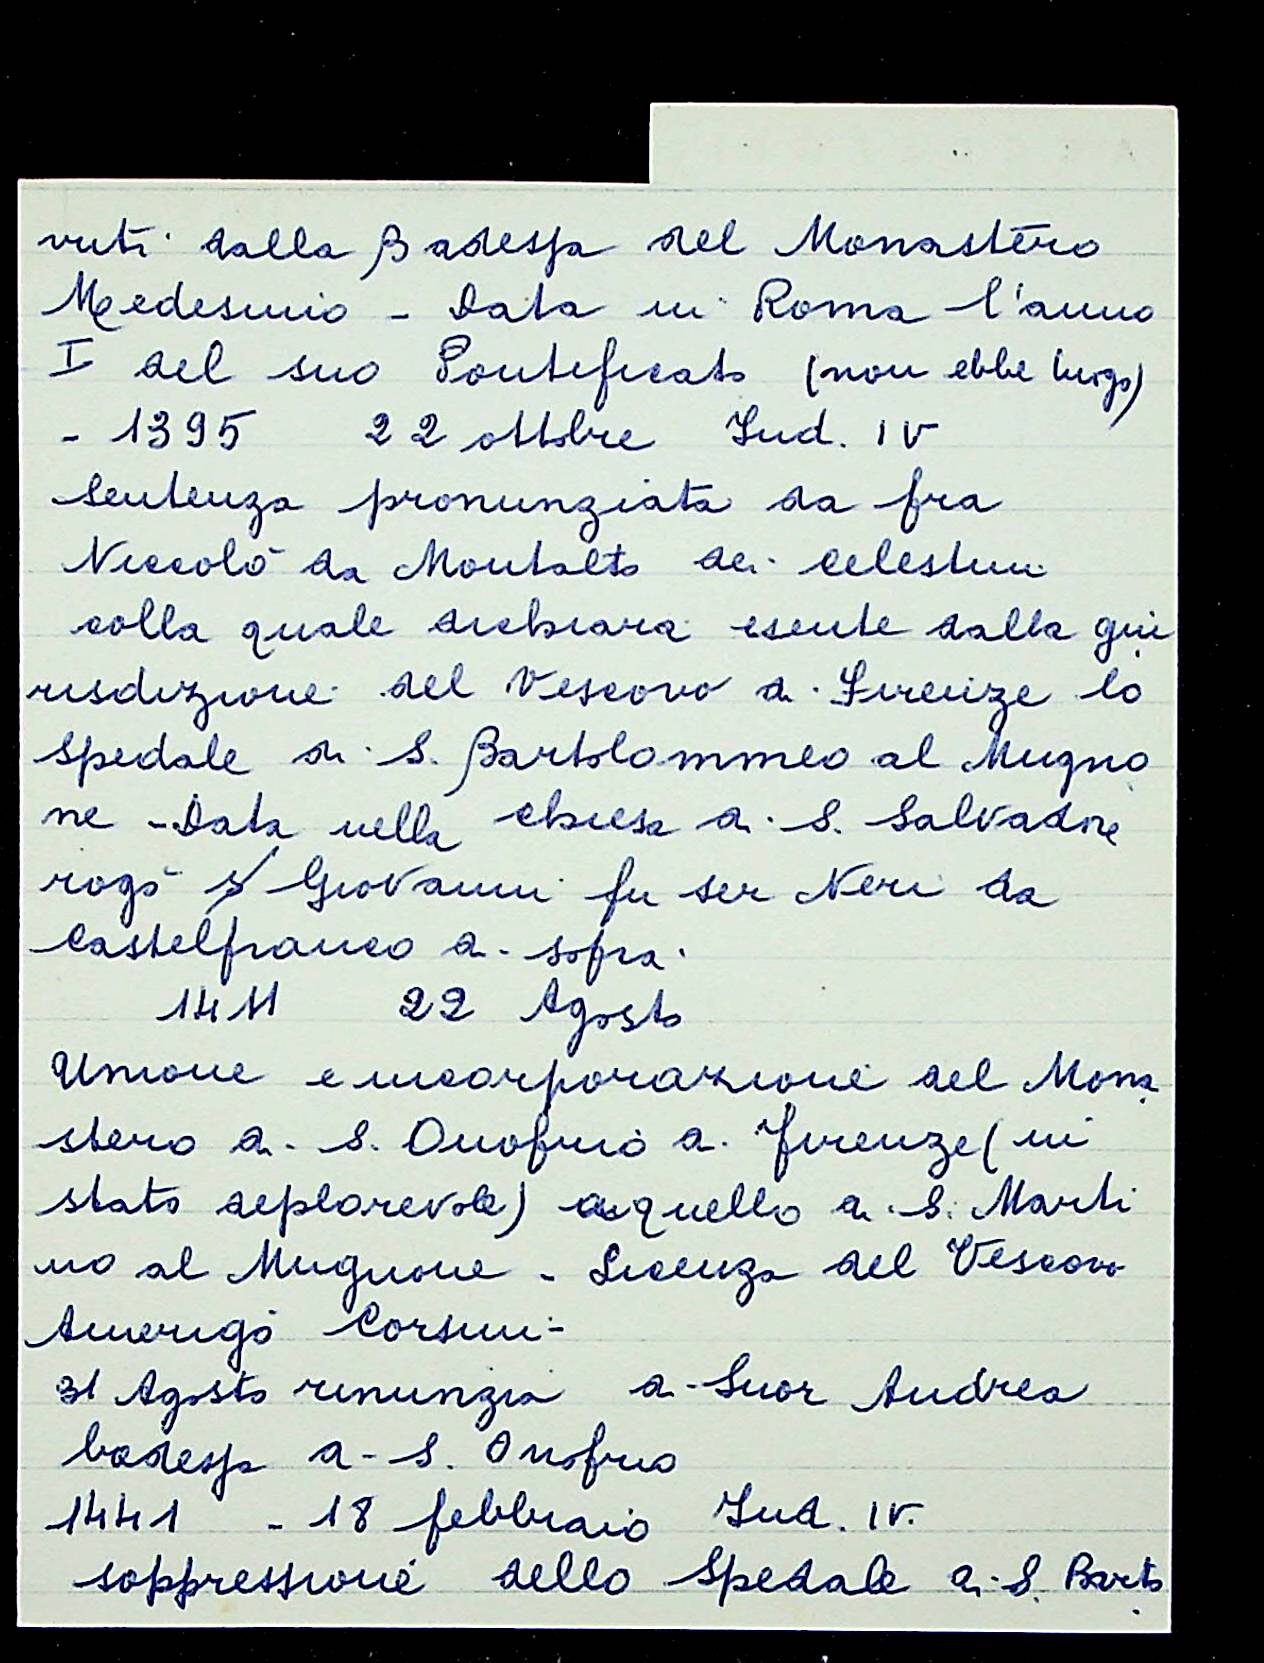 vuti dalla Badessa del Monastero
Medesimo - Data in Roma l'anno
I del suo Pontificato (non ebbe luogo)
- 1395 22 ottobre Ind. IV
Sentenza pronunziata da fra
Niccolò da Montalto dei Celestini
colla quale dichiara esente dalla giu
risdizione del Vescovo di Firenze lo
Spedale di S. Bartolommeo al Mugno
ne - Data nella chiesa di S. Salvadore
rogò s/ Giovanni fu ser Neri da
Castelfranco di sopra.
1411 22 Agosto
Unione e incorporazione del Mona
stero di S. Onofrio di Firenze (in
stato deplorevole) a quello di S. Marti
no al Mugnone - Licenza del Vescovo
Amerigo Corsini -
31 Agosto rinunzia di Suor Andrea
badessa di S. Onofrio
1441 - 18 febbraio Ind. IV.
soppressione dello Spedale di S. Barto